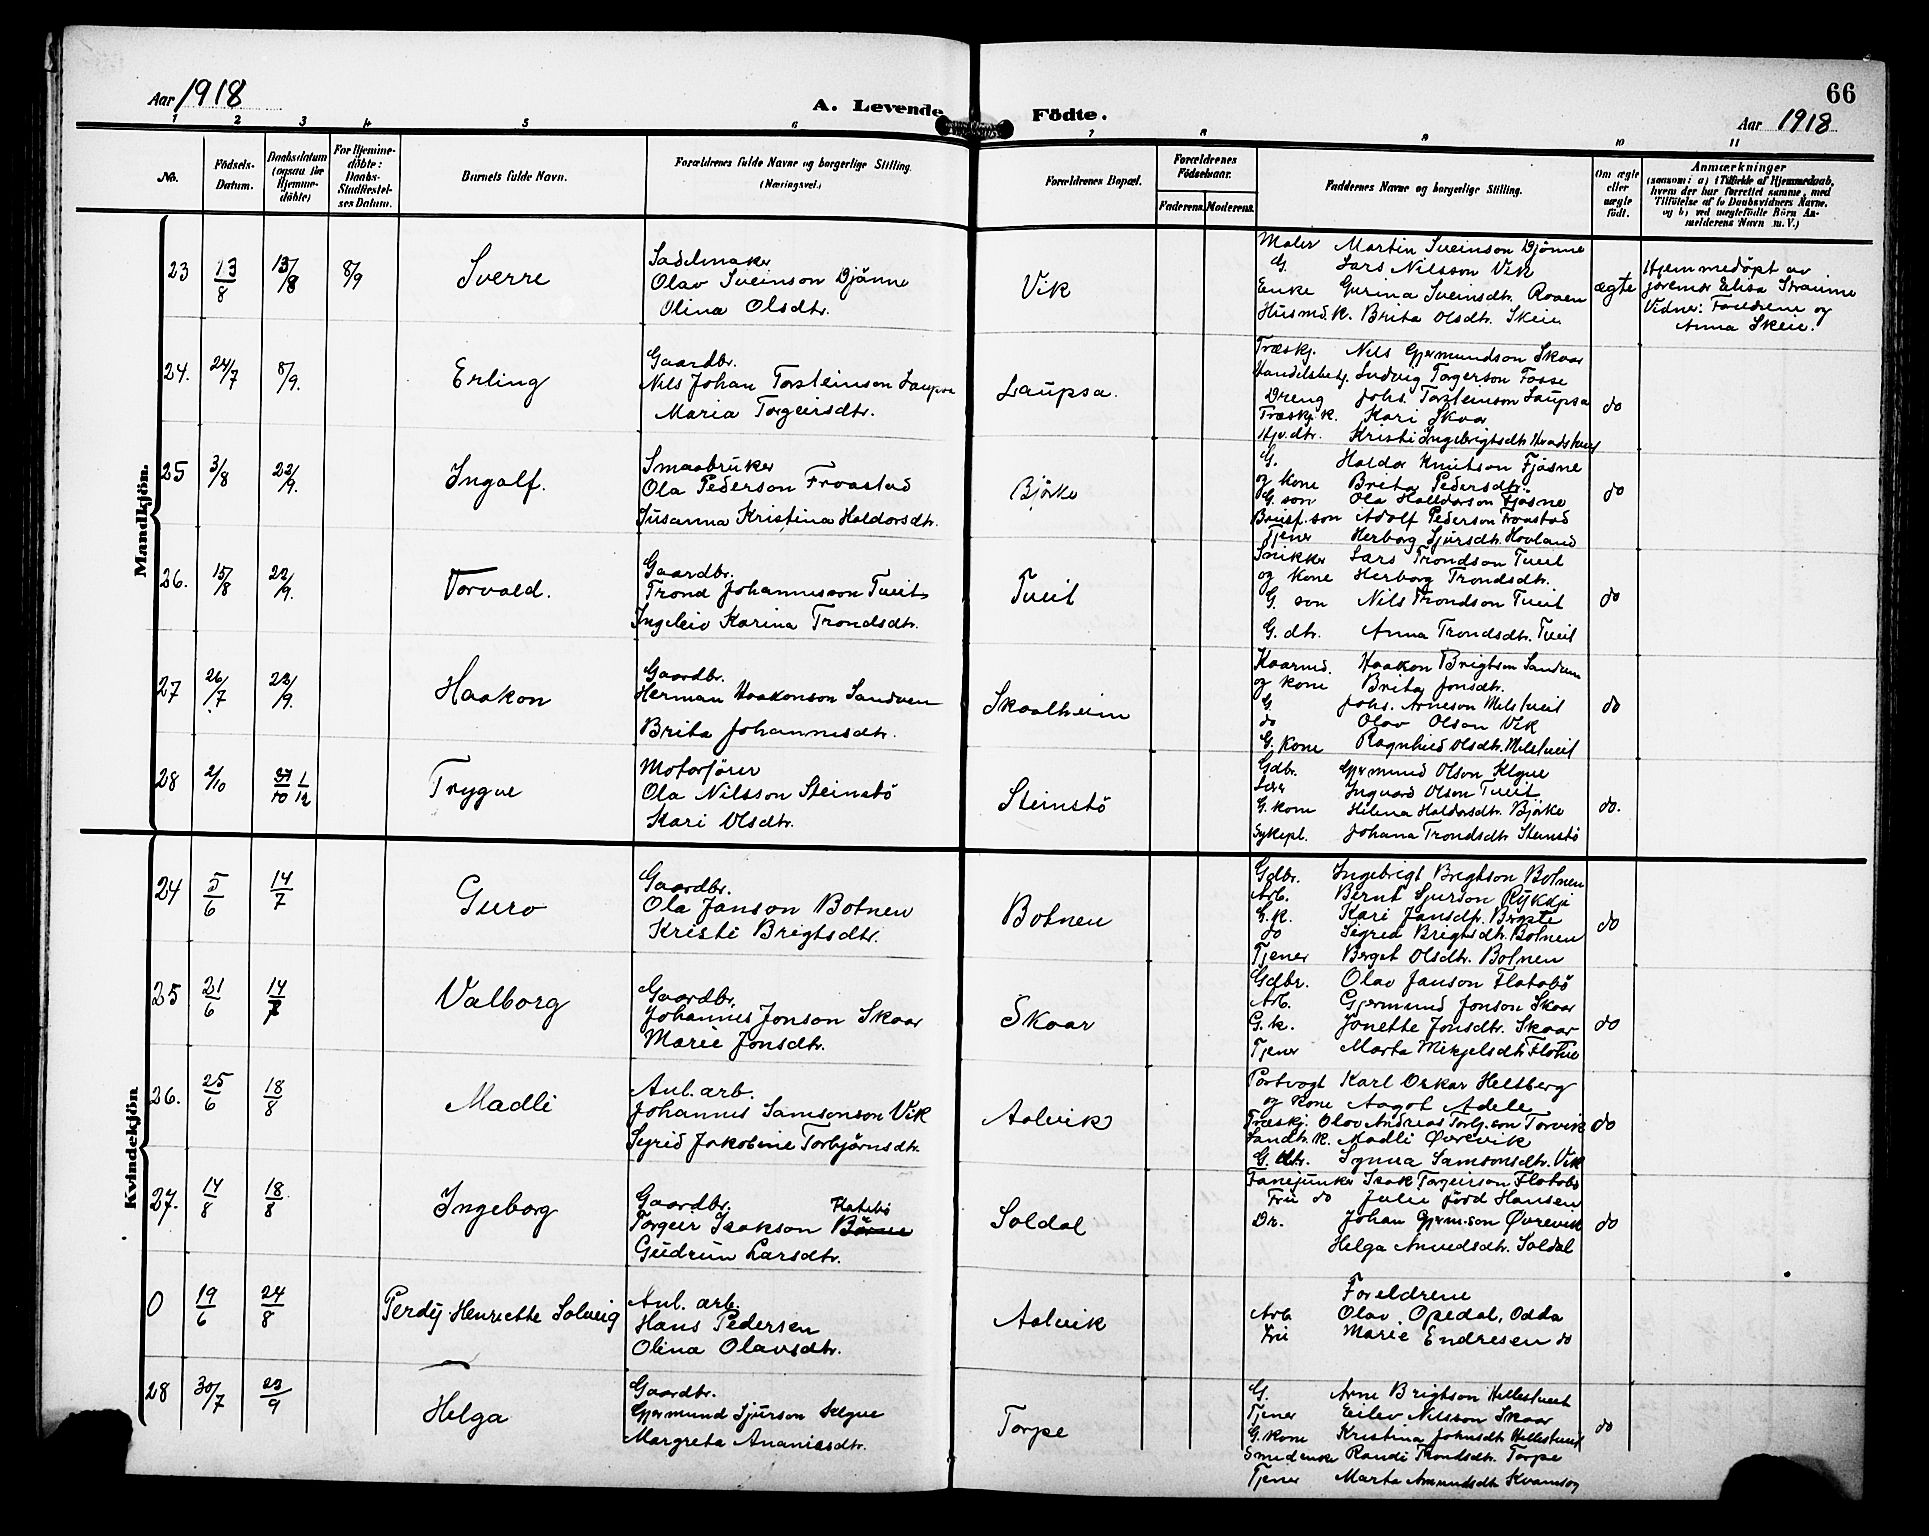 Aar 1918
A. Levende Födte.
66
Aar 1918
1 2 3 4 5 6 7 8 9 10 11
No.
Födsels-Datum.
Daabsdatum (ogsaa for Hjemme-döbte)
For Hjemme-döbte: Daabs-Stadfæstel-ses Datum.
Barnets fulde Navn.
Forældrenes fulde Navne og borgerlige Stilling.
(Næringsvei.)
Forældrenes Bopæl.
Forældrenes Födselsaar.
Faderens. Moderens.
Faddernes Navne og borgerlige Stilling.
Om ægte eller uægte födt.
Anmærkninger
(saasom: a) i Tilfælde af Hjemmedaab, hvem der har forrettet samme, med Tilföielse af to Daabsvidners Navne, og b) ved uægtefödte Börn Anmelderens Navn m. V.)
Mandkjön.
23 13/8 13/8 8/9 Sverre
Sadelmaker
Olav Sveinson Djönne
Olina Olsdtr.
Vik
Maler Martin Sveinson Djönne
G. Lars Nilsson Vik
Enke Gurina Sveinsdtr. Roaen
Husmd.k. Brita Olsdtr. Skeie
ægte
Hjemmedöpt av
jordmor Elisa Straume
Vidner: Foreldrene og
Anna Skeie.
24. 24/7 8/9. Erling
Gaardbr.
Nils Johan Torsteinson Laupsa
Maria Torgeirsdtr.
Laupsa.
Træskj. Nils Gjermundson Skaar
Handelsbetj. Ludvig Torgerson Fosse
Dreng Johs. Torsteinson Laupsa
Træskj.k. Kari Skaar
Hjv.dtr. Kristi Ingebrigtsdtr.
do
25 3/8 22/9. Ingolf.
Smaabruker
Ola Pederson Froastad
Susanna Kristina Haldorsdtr.
Bjørke
G. Haldor Knutson Fjøsne
og kone Brita Pedersdtr.
G. son Ola Halldorson Fjøsne
son Adolf Pederson Froastad
Tjener Herborg Sjursdtr. Hovland
do
26. 15/8 22/9. Torvald.
Gaardbr.
Trond Johannesson Tveit
Ingeleiv Karina Trondsdtr.
Tveit
Snikker Lars Trondson Tveit
og kone Herborg Trondsdtr.
G. son Nils Trondson Tveit
G. dtr. Anna Trondsdtr. Tveit
do
27 26/7 22/9. Haakon
Gaardbr.
Herman Haakonson Sandven
Brita Johannesdtr.
Skaalheim
Kaarmd. Haakon Brigtson Sandven
og kone Brita Jonsdtr.
G. Johs. Arneson Melstveit
do Olav Olson Vik
G. kone Ragnhild Olsdtr. Melstveit
do
28 2/10 1/12 Trygve
Motorfører
Ola Nilsson Steinstö
Kari Olsdtr.
Steinstö
Gdbr. Gjermund Olson Klyve
Lærer Ingvard Olson Tveit
G. kone Helena Haldorsdtr. Bjørke
Sykepl. Johana Trondsdtr. Steinstö
do.
Kvindekjön
24 5/6 14/7 Guro
Gaardbr.
Ola Janson Botnen
Kristi Brigtsdtr.
Botnen
Gdbr. Ingebrigt Brigtson Botnen
Arb. Bernt Sjurson
G.k. Kari Jansdtr.
do Sigrid Brigtsdtr. Botnen
Tjener Berget Olsdtr. Botnen
do
25 21/6 14/7 Valborg
Gaardbr.
Johannes Jonson Skaar
Marie Jonsdtr.
Skaar
Gdbr. Olav Janson Flatabö
Arb. Gjermund Jonson Skaar
G.k. Jonette Jonsdtr. Skaar
Tjener Marta Mikjelsdtr.
do
26. 25/6 18/8 Madli
Anl. arb.
Johannes Samsonson Vik
Sigrid Jakobine Torbjørnsdtr.
Aalvik
Portvogt Karl Oskar Heltberg
og kone Aagot Adele
Træskj. Olav Andreas Torbj.son Torvik
Landh.k. Madli Øvrevik
G. dtr. Synva Samsonsdtr. Vik
do
27. 14/8 18/8 Ingeborg
Gaardbr.
Torgeir Isakson Flatebö
Gudrun Larsdtr.
Soldal
Fanejunker Isak Torgeirson Flatabö
Fru do Julie född Hansen
Dr. Johan Gjerm.son Øvrevik
Helga Amundsdtr. Soldal
do
0 19/6 24/8 Perdij Henriette Solveig
Anl. arb.
Hans Pedersen
Olina Olavsdtr.
Aalvik
Foreldrene
Arb Olav Opedal, Odda
Fru Marie Endresen do
28 30/7 /9 Helga
Gaardbr.
Gjermund Sjurson Klyve
Margreta Ananiasdtr.
Torpe
G. Arne Brigtson Hellestveit
Tjener Eilev Nilsson Skaar
G. kone Kristina Johnsdtr. Hellestveit
Smedenke Randi Trondsdtr. Torpe
Tjener Marta Amundsdtr.
do